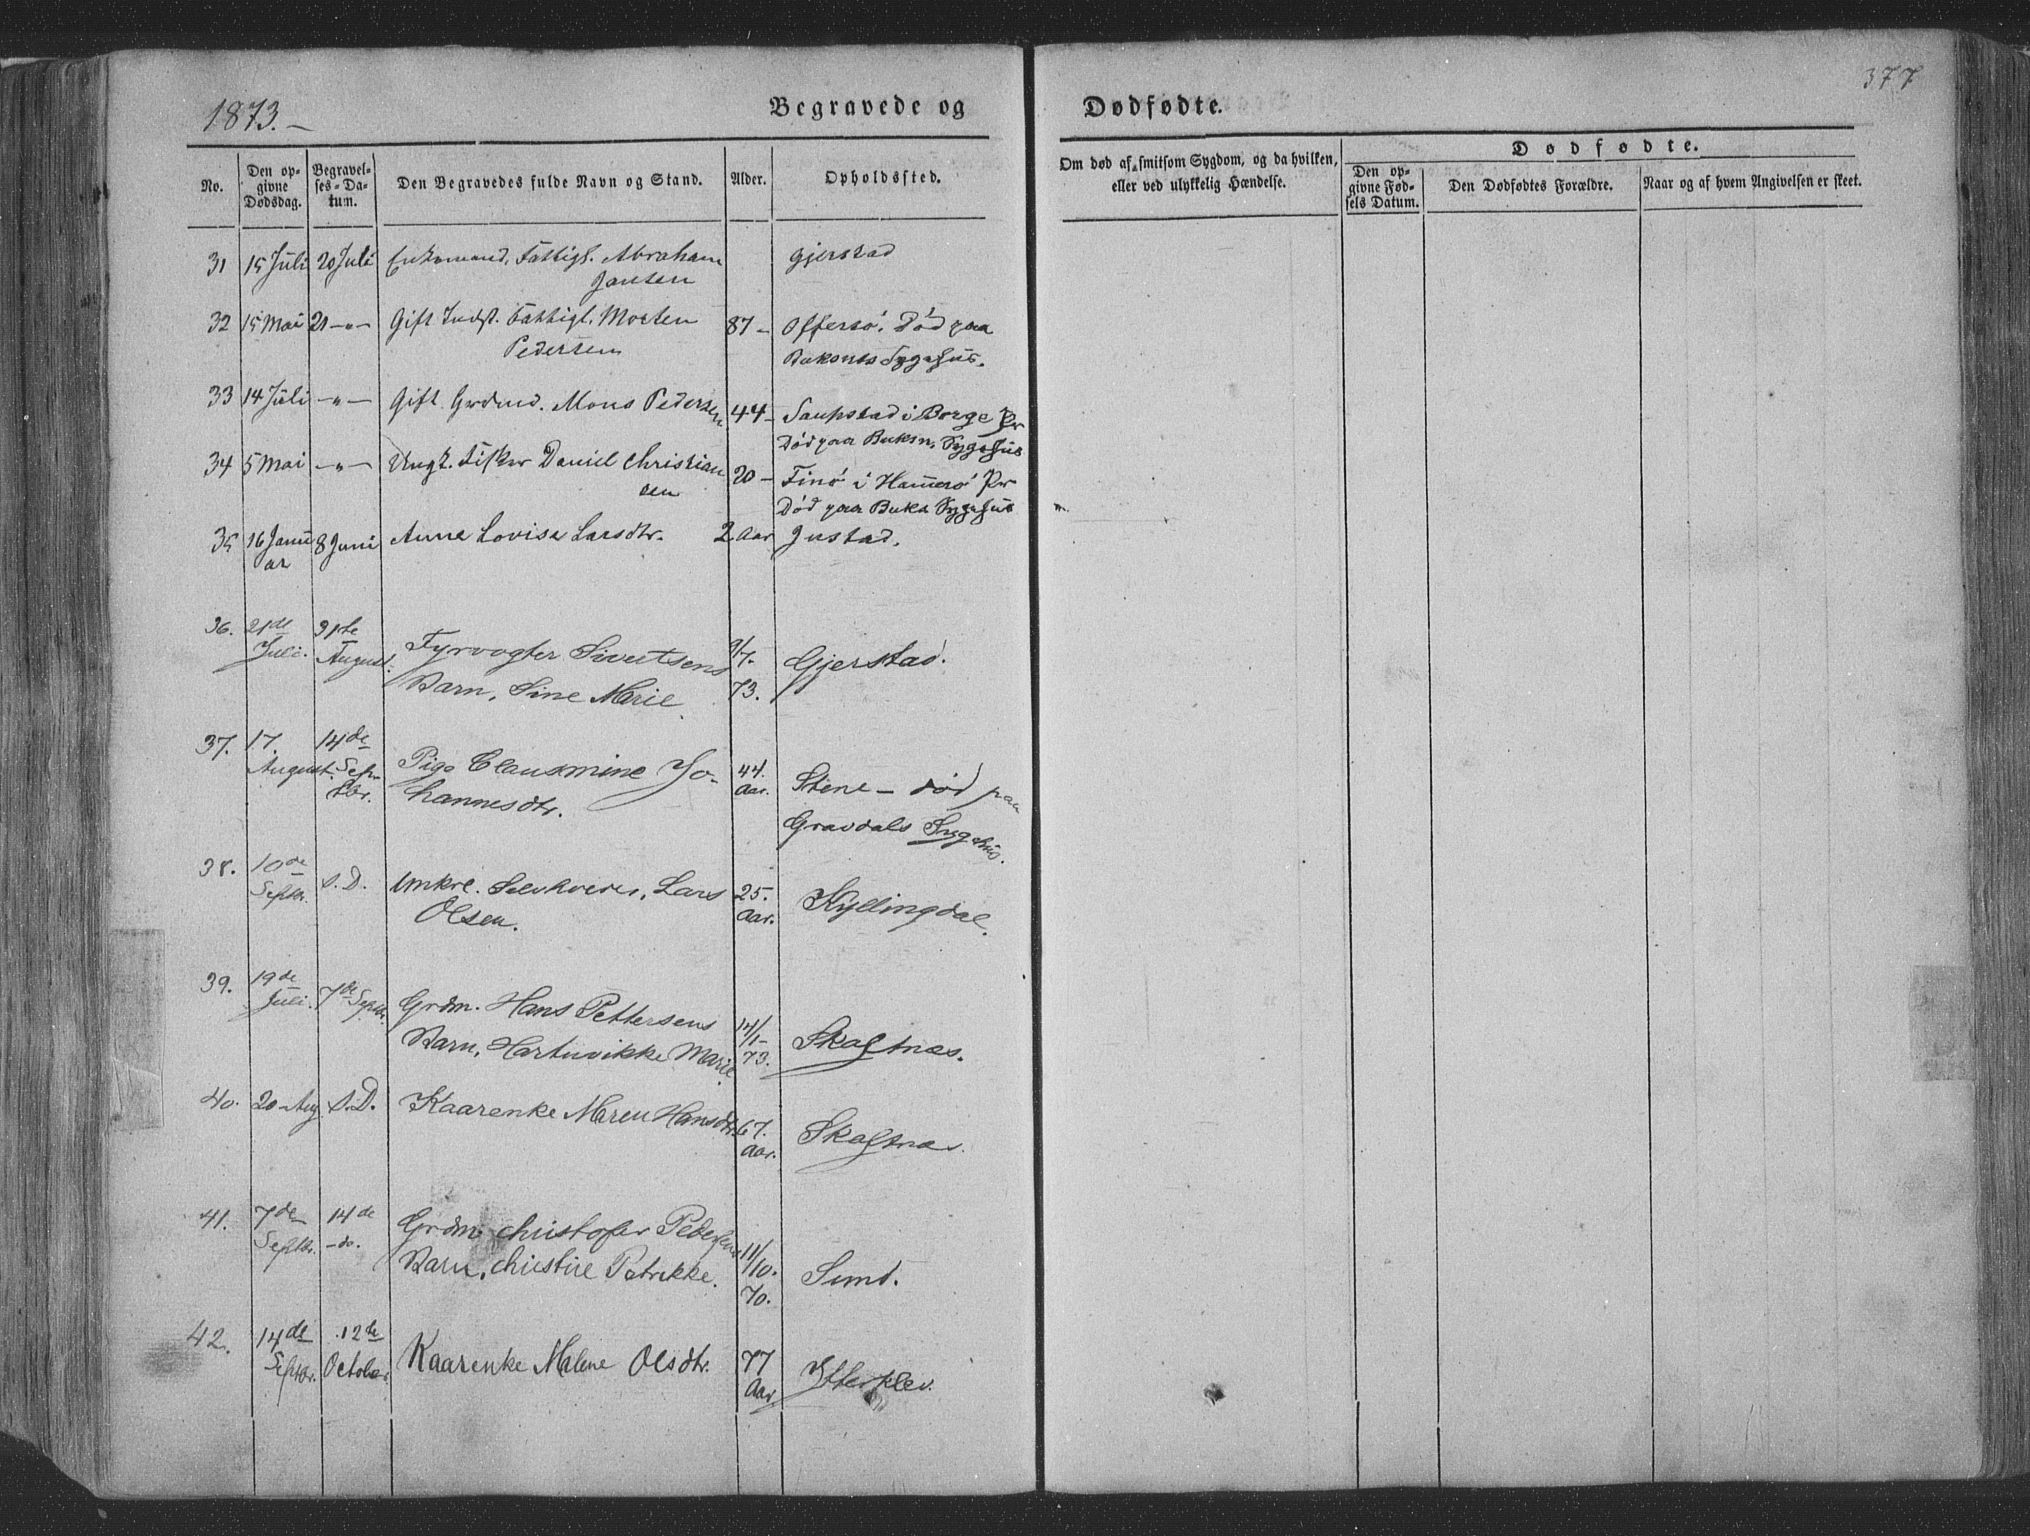 377
1873.—
Begravede og Dødfødte.
No.
Den op-
givne
Dødsdag.
Begravel-
ses-Da-
tum.
Den Begravedes fulde Navn og Stand.
Alder.
Opholdssted.
Om død af smitsom Sygdom, og da hvilken,
eller ved ulykkelig Hændelse.
Dødfødte.
Den op-
givne Fød-
sels Datum.
Den Dødfødtes Forældre.
Naar og af hvem Angivelsen er skeet.
31 15 Juli 20 Juli Enkemand, Fattigl. Abraham Gjerstad
Jansen
32 15 Mai 21 —"— Gift Indst. Fattigl. Morten 87 – Offersö. Död paa
Pedersen Buksnes Sygehus.
33 14 Juli —"— Gift Grdmd. Mons Pedersen 44 – Saupstad i Borge Pr
Död paa Buksn. Sygehus
34 5 Mai —"— Ungk. Fisker Daniel Christian 20 – Finö i Hamerö Pr
sen Död paa Buksn Sygehus
35 16 Janu 8 Juni Anne Lovise Larsdtr. 2 Aar Justad.
ar
36. 21de 31te
Juli. August. Fyrvogter Sivertsens 9/7- Gjerstad.
Barn, Sine Marie 73.
37. 17. 14de
August. Sep- Pige Clausmine Jo- 44. Stene — död paa
tbr. hannesdtr. Aar. Gravdals Sygehus.
38. 10de S. D. Umkre. Selvhver, Lars 25. Kyllingdal.
Septbr. Olsen. Aar.
39. 19de 7de Septbr. Grdm. Hans Pettersens 14/1- Skaftnæs.
Juli. Barn, Hartuvikke Marie 73.
40. 20 Aug S. D. Kaarenke Maren Hansdtr. 67. Skaftnæs.
Aar.
41. 7de 14de Grdm. Christofer Pedersens 11/10. Sund.
Septbr. -do. Barn, Christine Petrikke. 70.
42. 14de 12te Kaarenke Malene Olsdtr. 77 Ytterklev.
Septbr. October Aar